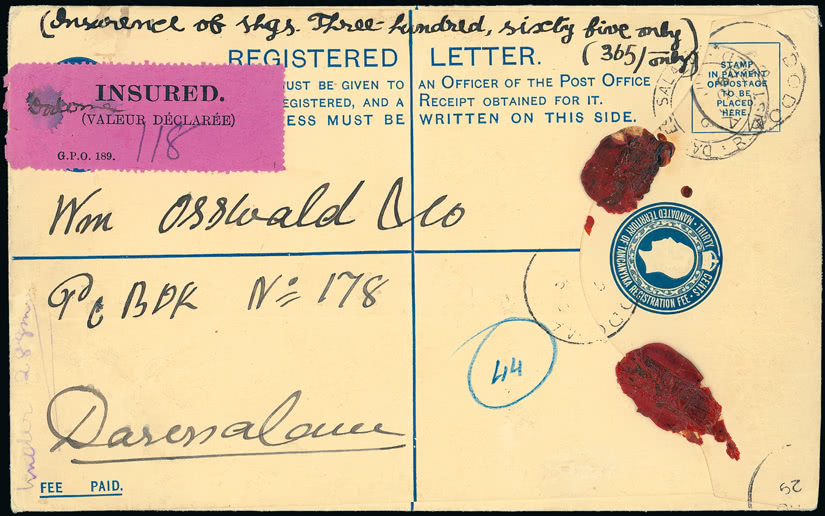 (Insurence of shgs. Three hundred, sixty five only)
(365/ only)
REGISTERED LETTER.
UST BE GIVEN TO AN OFFICER OF THE POST OFFICE
EGISTERED, AND A RECEIPT OBTAINED FOR IT.
ESS MUST BE WRITTEN ON THIS SIDE.
STAMP
IN PAYMENT
OF POSTAGE
TO BE
PLACED
HERE.
INSURED.
(VALEUR DÉCLARÉE)
Dodoma
718
G.P.O. 189.
DODOMA
DAR-ES-SALAAM
Wm Osswald & Co
MANDATED TERRITORY OF TANGANYIKA REGISTRATION FEE
THIRTY CENTS
Po Box No 178
DODOMA
44
Daressalam
under 28gm
FEE PAID.
29